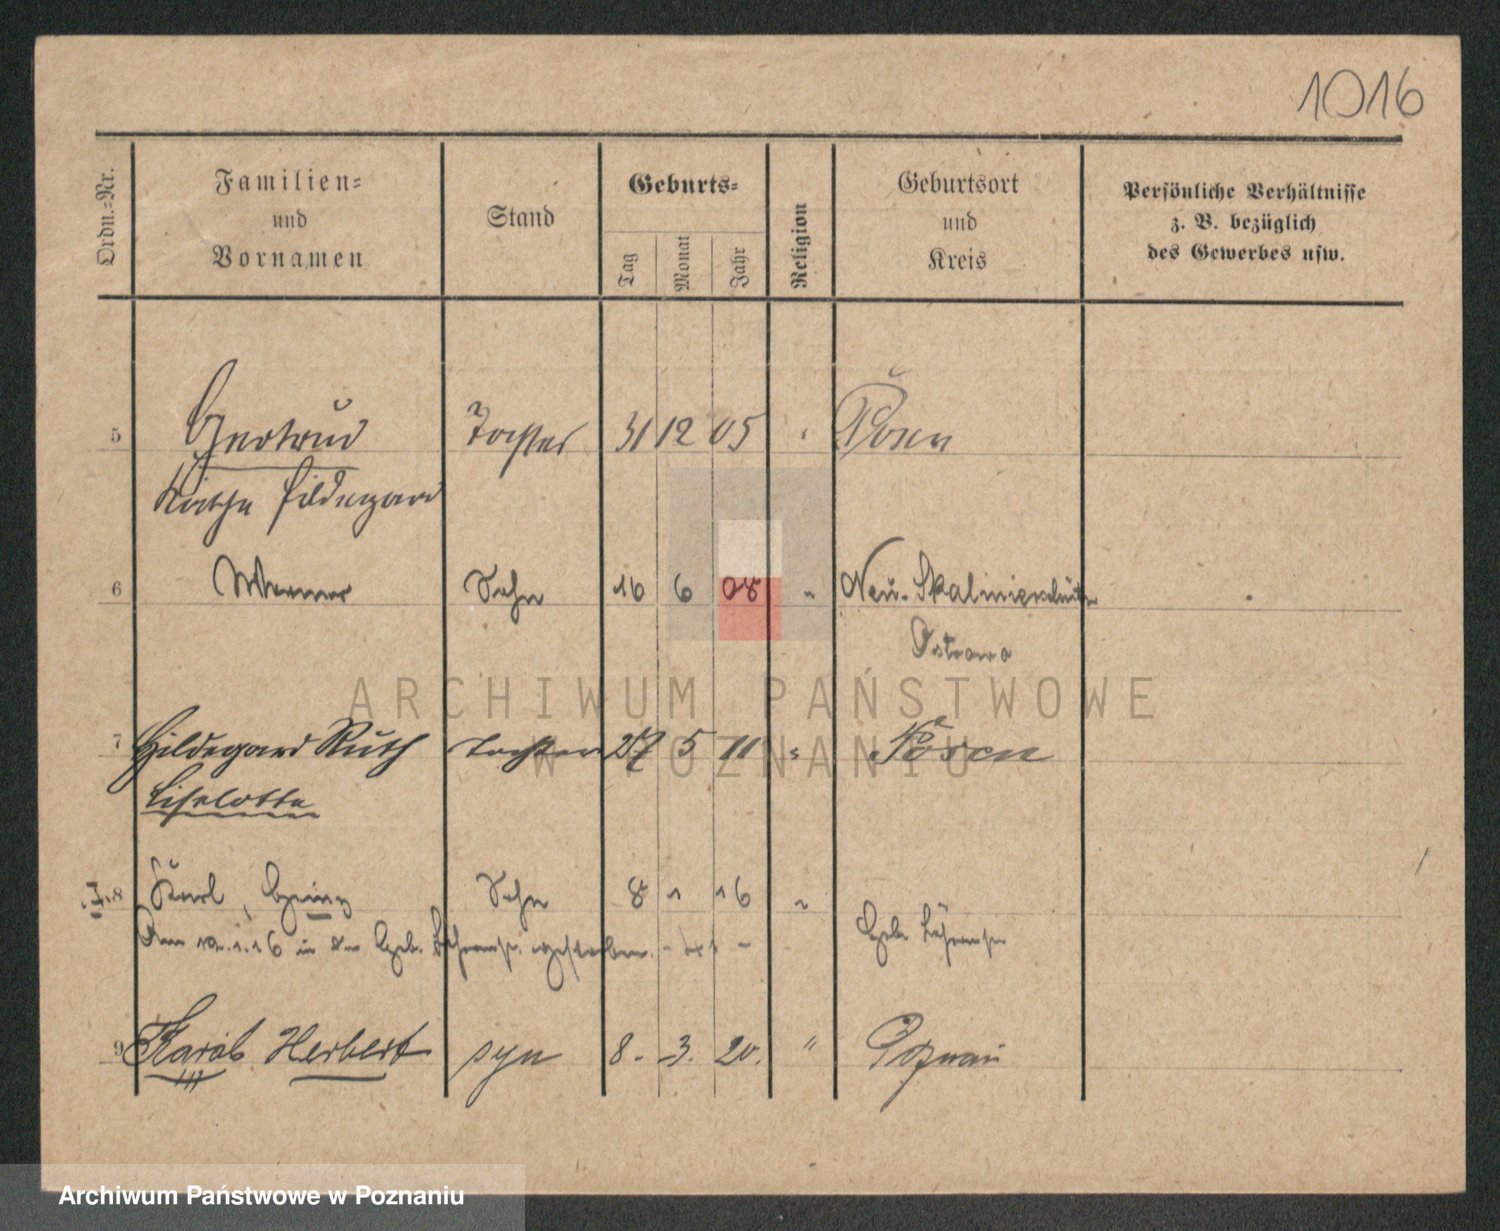 1016
Ordn.-Nr.
Familien-
und
Vornamen
Stand
Geburts-
Tag
Monat
Jahr
Religion
Geburtsort
und
Kreis
Persönliche Verhältnisse
z. B. bezüglich
des Gewerbes usw.
5 Gertrud Tochter 31 12 05 " Posen
Käthe Hildegard
6 Werner Sohn 16 6 08 " Neu-Skalmierschütz
Ostrowo
ARCHIWUM PAŃSTWOWE
7 Hildegard Ruth Tochter 27 5 11 " Posen
W POZNANIU
Liselotte
8 Karl, Heinz Sohn 8 1 16 "
Am 1.16 in der Geb. gestorben.
Geb.
9 Karol Herbert syn 8. 3. 20. " Poznań
Archiwum Państwowe w Poznaniu